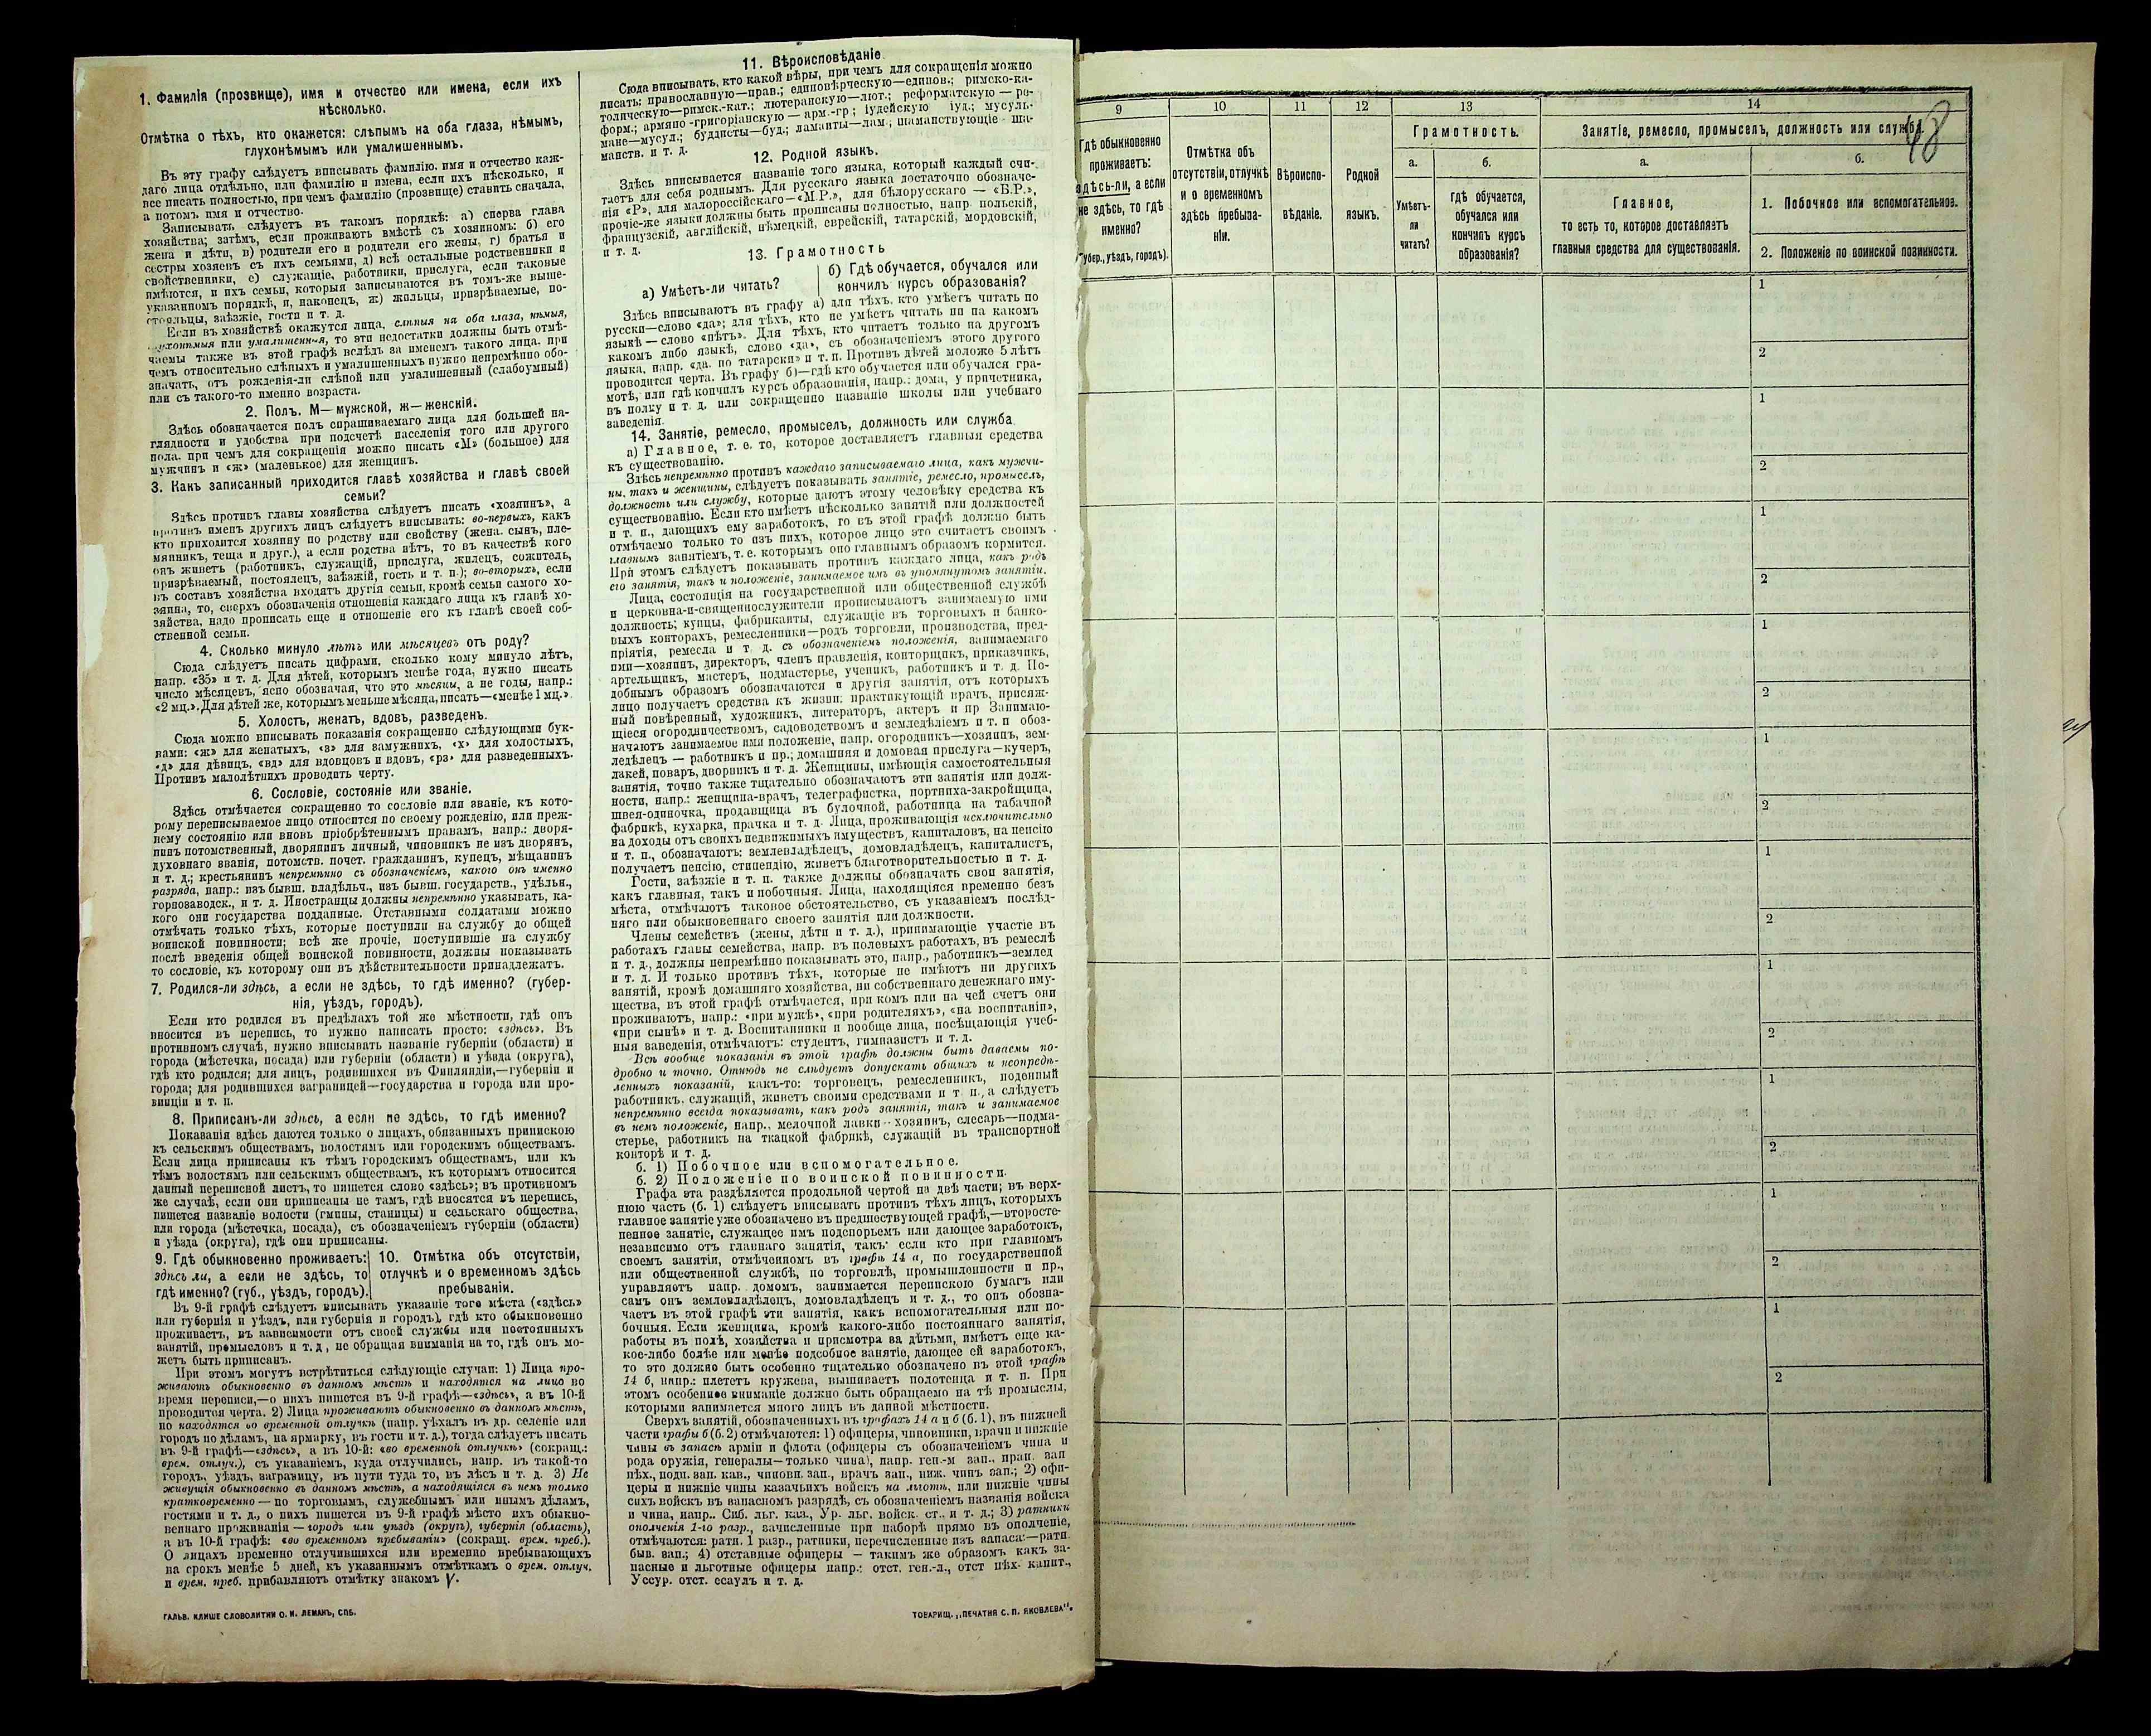 1. Фамилія (прозвище), имя и отчество или имена, если ихъ
нѣсколько.
Отмѣтка о тѣхъ, кто окажется: слѣпымъ на оба глаза, нѣмымъ,
глухонѣмымъ или умалишеннымъ.
Въ эту графу слѣдуетъ вписывать фамилію, имя и отчество каж-
даго лица отдѣльно, или фамилію и имена, если ихъ нѣсколько, и
все писать полностью, при чемъ фамилію (прозвище) ставить сначала,
а потомъ имя и отчество.
Записывать слѣдуетъ въ такомъ порядкѣ: а) сперва глава
хозяйства; затѣмъ, если проживаютъ вмѣстѣ съ хозяиномъ: б) его
жена и дѣти, в) родители его и родители его жены, г) братья и
сестры хозяевъ съ ихъ семьями, д) всѣ остальные родственники и
свойственники, е) служащіе, работники, прислуга, если таковые
имѣются, и ихъ семьи, которыя записываются въ томъ-же выше-
указанномъ порядкѣ, и, наконецъ, ж) жильцы, призрѣваемые, по-
стояльцы, заѣзжіе, гости и т. д.
Если въ хозяйствѣ окажутся лица, слѣпыя на оба глаза, нѣмыя,
глухонѣмыя или умалишенныя, то эти недостатки должны быть отмѣ-
чаемы также въ этой графѣ вслѣдъ за именемъ такого лица, при
чемъ относительно слѣпыхъ и умалишенныхъ нужно непремѣнно обо-
значать, отъ рожденія-ли слѣпой или умалишенный (слабоумный)
или съ такого-то именно возраста.
2. Полъ. М—мужской, ж—женскій.
Здѣсь обозначается полъ спрашиваемаго лица для большей на-
глядности и удобства при подсчетѣ населенія того или другого
пола, при чемъ для сокращенія можно писать «М» (большое) для
мужчинъ и «ж» (маленькое) для женщинъ.
3. Какъ записанный приходится главѣ хозяйства и главѣ своей
семьи?
Здѣсь противъ главы хозяйства слѣдуетъ писать «хозяинъ», а
противъ именъ другихъ лицъ слѣдуетъ вписывать: во-первыхъ, какъ
кто приходится хозяину по родству или свойству (жена, сынъ, пле-
мянникъ, теща и друг.), а если родства нѣтъ, то въ качествѣ кого
онъ живетъ (работникъ, служащій, прислуга, жилецъ, сожитель,
призрѣваемый, постоялецъ, заѣзжій, гость и т. п.); во-вторыхъ, если
въ составъ хозяйства входятъ другія семьи, кромѣ семьи самого хо-
зяина, то, сверхъ обозначенія отношенія каждаго лица къ главѣ хо-
зяйства, надо прописать еще и отношеніе его къ главѣ своей соб-
ственной семьи.
4. Сколько минуло лѣтъ или мѣсяцевъ отъ роду?
Сюда слѣдуетъ писать цифрами, сколько кому минуло лѣтъ,
напр. «35» и т. д. Для дѣтей, которымъ менѣе года, нужно писать
число мѣсяцевъ, ясно обозначая, что это мѣсяцы, а не годы, напр.:
«2 мц.». Для дѣтей же, которымъ меньше мѣсяца, писать—«менѣе 1 мц.».
5. Холостъ, женатъ, вдовъ, разведенъ.
Сюда можно вписывать показанія сокращенно слѣдующими бук-
вами: «ж» для женатыхъ, «з» для замужнихъ, «х» для холостыхъ,
«д» для дѣвицъ, «вд» для вдовцовъ и вдовъ, «рз» для разведенныхъ.
Противъ малолѣтнихъ проводить черту.
6. Сословіе, состояніе или званіе.
Здѣсь отмѣчается сокращенно то сословіе или званіе, къ кото-
рому переписываемое лицо относится по своему рожденію, или преж-
нему состоянію или вновь пріобрѣтеннымъ правамъ, напр.: дворя-
нинъ потомственный, дворянинъ личный, чиновникъ не изъ дворянъ,
духовнаго званія, потомств. почет. гражданинъ, купецъ, мѣщанинъ
и т. д.; крестьянинъ непремѣнно съ обозначеніемъ, какого онъ именно
разряда, напр.: изъ бывш. владѣльч., изъ бывш. государств., удѣльн.,
горнозаводск., и т. д. Иностранцы должны непремѣнно указывать, ка-
кого они государства подданные. Отставными солдатами можно
отмѣчать только тѣхъ, которые поступили на службу до общей
воинской повинности; всѣ же прочіе, поступившіе на службу
послѣ введенія общей воинской повинности, должны показывать
то сословіе, къ которому они въ дѣйствительности принадлежатъ.
7. Родился-ли здѣсь, а если не здѣсь, то гдѣ именно? (губер-
нія, уѣздъ, городъ).
Если кто родился въ предѣлахъ той же мѣстности, гдѣ онъ
вносится въ перепись, то нужно написать просто: «здѣсь». Въ
противномъ случаѣ, нужно вписывать названіе губерніи (области) и
города (мѣстечка, посада) или губерніи (области) и уѣзда (округа),
гдѣ кто родился; для лицъ, родившихся въ Финляндіи,—губерніи и
города; для родившихся заграницей—государства и города или про-
винціи и т. п.
8. Приписанъ-ли здѣсь, а если не здѣсь, то гдѣ именно?
Показанія здѣсь даются только о лицахъ, обязанныхъ припискою
къ сельскимъ обществамъ, волостямъ или городскимъ обществамъ.
Если лица приписаны къ тѣмъ городскимъ обществамъ, или къ
тѣмъ волостямъ или сельскимъ обществамъ, къ которымъ относится
данный переписной листъ, то пишется слово «здѣсь»; въ противномъ
же случаѣ, если они приписаны не тамъ, гдѣ вносятся въ перепись,
пишется названіе волости (гмины, станицы) и сельскаго общества,
или города (мѣстечка, посада), съ обозначеніемъ губерніи (области)
и уѣзда (округа), гдѣ они приписаны.
9. Гдѣ обыкновенно проживаетъ:
здѣсь ли, а если не здѣсь, то
гдѣ именно? (губ., уѣздъ, городъ).
10. Отмѣтка объ отсутствіи,
отлучкѣ и о временномъ здѣсь
пребываніи.
Въ 9-й графѣ слѣдуетъ вписывать указаніе того мѣста («здѣсь»
или губернія и уѣздъ, или губернія и городъ), гдѣ кто обыкновенно
проживаетъ, въ зависимости отъ своей службы или постоянныхъ
занятій, промысловъ и т. д., не обращая вниманія на то, гдѣ онъ мо-
жетъ быть приписанъ.
При этомъ могутъ встрѣтиться слѣдующіе случаи: 1) Лица про-
живаютъ обыкновенно въ данномъ мѣстѣ и находятся на лицо во
время переписи,—о нихъ пишется въ 9-й графѣ—«здѣсь», а въ 10-й
проводится черта. 2) Лица проживаютъ обыкновенно въ данномъ мѣстѣ,
но находятся во временной отлучкѣ (напр. уѣхалъ въ др. селеніе или
городъ по дѣламъ, на ярмарку, въ гости и т. д.), тогда слѣдуетъ писать
въ 9-й графѣ—«здѣсь», а въ 10-й: «во временной отлучкѣ» (сокращ.:
врем. отлуч.), съ указаніемъ, куда отлучились, напр. въ такой-то
городъ, уѣздъ, заграницу, въ пути туда то, въ лѣсъ и т. д. 3) Не
живущія обыкновенно въ данномъ мѣстѣ, а находящіяся въ немъ только
кратковременно — по торговымъ, служебнымъ или инымъ дѣламъ,
гостями и т. д., о нихъ пишется въ 9-й графѣ мѣсто ихъ обыкно-
веннаго проживанія — городъ или уѣздъ (округъ), губернія (область),
а въ 10-й графѣ: «во временномъ пребываніи» (сокращ. врем. преб.).
О лицахъ временно отлучившихся или временно пребывающихъ
на срокъ менѣе 5 дней, къ указаннымъ отмѣткамъ о врем. отлуч.
и врем. преб. прибавляютъ отмѣтку знакомъ V.
ГАЛЬВ. КЛИШЕ СЛОВОЛИТНИ О. И. ЛЕМАНЪ, СПБ.
11. Вѣроисповѣданіе.
Сюда вписывать, кто какой вѣры, при чемъ для сокращенія можно
писать: православную—прав.; единовѣрческую—единов.; римско-ка-
толическую—римск.-кат.; лютеранскую—лют.; реформатскую — ре-
форм.; армяно-григоріанскую — арм.-гр; іудейскую іуд.; мусуль-
мане—мусул.; буддисты—буд.; ламаиты—лам.; шаманствующіе ша-
манств. и т. д.
12. Родной языкъ.
Здѣсь вписывается названіе того языка, который каждый счи-
таетъ для себя роднымъ. Для русскаго языка достаточно обозначе-
нія «Р», для малороссійскаго—«М.Р.», для бѣлорусскаго — «Б.Р.»,
прочіе-же языки должны быть прописаны полностью, напр. польскій,
французскій, англійскій, нѣмецкій, еврейскій, татарскій, мордовскій,
и т. д.
13. Грамотность
а) Умѣетъ-ли читать?
б) Гдѣ обучается, обучался или
кончилъ курсъ образованія?
Здѣсь вписываютъ въ графу а) для тѣхъ, кто умѣетъ читать по
русски—слово «да»; для тѣхъ, кто не умѣетъ читать ни на какомъ
языкѣ—слово «нѣтъ». Для тѣхъ, кто читаетъ только на другомъ
какомъ либо языкѣ, слово «да», съ обозначеніемъ этого другого
языка, напр. «да, по татарски» и т. п. Противъ дѣтей моложе 5 лѣтъ
проводится черта. Въ графу б)—гдѣ кто обучается или обучался гра-
мотѣ, или гдѣ кончилъ курсъ образованія, напр.: дома, у причетника,
въ полку и т. д. или сокращенно названіе школы или учебнаго
заведенія.
14. Занятіе, ремесло, промыселъ, должность или служба.
а) Главное, т. е. то, которое доставляетъ главныя средства
къ существованію.
Здѣсь непремѣнно противъ каждаго записываемаго лица, какъ мужчи-
ны, такъ и женщины, слѣдуетъ показывать занятіе, ремесло, промыселъ,
должность или службу, которые даютъ этому человѣку средства къ
существованію. Если кто имѣетъ нѣсколько занятій или должностей
и т. п., дающихъ ему заработокъ, то въ этой графѣ должно быть
отмѣчаемо только то изъ нихъ, которое лицо это считаетъ своимъ
главнымъ занятіемъ, т. е. которымъ оно главнымъ образомъ кормится.
При этомъ слѣдуетъ показывать противъ каждаго лица, какъ родъ
его занятія, такъ и положеніе, занимаемое имъ въ упомянутомъ занятіи.
Лица, состоящія на государственной или общественной службѣ
и церковно-и-священнослужители прописываютъ занимаемую ими
должность; купцы, фабриканты, служащіе въ торговыхъ и банко-
выхъ конторахъ, ремесленники—родъ торговли, производства, пред-
пріятія, ремесла и т. д. съ обозначеніемъ положенія, занимаемаго
ими—хозяинъ, директоръ, членъ правленія, конторщикъ, приказчикъ,
артельщикъ, мастеръ, подмастерье, ученикъ, работникъ и т. д. По-
добнымъ образомъ обозначаются и другія занятія, отъ которыхъ
лицо получаетъ средства къ жизни: практикующій врачъ, присяж-
ный повѣренный, художникъ, литераторъ, актеръ и пр Занимаю-
щіеся огородничествомъ, садоводствомъ и земледѣліемъ и т. п. обоз-
начаютъ занимаемое ими положеніе, напр. огородникъ—хозяинъ, зем-
ледѣлецъ — работникъ и пр.; домашняя и домовая прислуга—кучеръ,
лакей, поваръ, дворникъ и т. д. Женщины, имѣющія самостоятельныя
занятія, точно также тщательно обозначаютъ эти занятія или долж-
ности, напр.: женщина-врачъ, телеграфистка, портниха-закройщица,
швея-одиночка, продавщица въ булочной, работница на табачной
фабрикѣ, кухарка, прачка и т. д. Лица, проживающія исключительно
на доходы отъ своихъ недвижимыхъ имуществъ, капиталовъ, на пенсію
и т. п., обозначаютъ: землевладѣлецъ, домовладѣлецъ, капиталистъ,
получаетъ пенсію, стипендію, живетъ благотворительностью и т. д.
Гости, заѣзжіе и т. п. также должны обозначать свои занятія,
какъ главныя, такъ и побочныя. Лица, находящіяся временно безъ
мѣста, отмѣчаютъ таковое обстоятельство, съ указаніемъ послѣд-
няго или обыкновеннаго своего занятія или должности.
Члены семействъ (жены, дѣти и т. д.), принимающіе участіе въ
работахъ главы семейства, напр. въ полевыхъ работахъ, въ ремеслѣ
и т. д., должны непремѣнно показывать это, напр., работникъ—землед
и т. д. И только противъ тѣхъ, которые не имѣютъ ни другихъ
занятій, кромѣ домашняго хозяйства, ни собственнаго денежнаго иму-
щества, въ этой графѣ отмѣчается, при комъ или на чей счетъ они
проживаютъ, напр.: «при мужѣ», «при родителяхъ», «на воспитаніи»,
«при сынѣ» и т. д. Воспитанники и вообще лица, посѣщающія учеб-
ныя заведенія, отмѣчаютъ: студентъ, гимназистъ и т. д.
Всѣ вообще показанія въ этой графѣ должны быть даваемы по-
дробно и точно. Отнюдь не слѣдуетъ допускать общихъ и неопредѣ-
ленныхъ показаній, какъ-то: торговецъ, ремесленникъ, поденный
работникъ, служащій, живетъ своими средствами и т. п., а слѣдуетъ
непремѣнно всегда показывать, какъ родъ занятія, такъ и занимаемое
въ немъ положеніе, напр., мелочной лавки - хозяинъ, слесарь—подма-
стерье, работникъ на ткацкой фабрикѣ, служащій въ транспортной
конторѣ и т. д.
б. 1) Побочное или вспомогательное.
б. 2) Положеніе по воинской повинности.
Графа эта раздѣляется продольной чертой на двѣ части; въ верх-
нюю часть (б. 1) слѣдуетъ вписывать противъ тѣхъ лицъ, которыхъ
главное занятіе уже обозначено въ предшествующей графѣ,—второсте-
пенное занятіе, служащее имъ подспорьемъ или дающее заработокъ,
независимо отъ главнаго занятія, такъ: если кто при главномъ
своемъ занятіи, отмѣченномъ въ графѣ 14 а, по государственной
или общественной службѣ, по торговлѣ, промышленности и пр.,
управляетъ напр. домомъ, занимается перепискою бумагъ или
самъ онъ землевладѣлецъ, домовладѣлецъ и т. д., то онъ обозна-
чаетъ въ этой графѣ эти занятія, какъ вспомогательныя или по-
бочныя. Если женщина, кромѣ какого-либо постояннаго занятія,
работы въ полѣ, хозяйства и присмотра за дѣтьми, имѣетъ еще ка-
кое-либо болѣе или менѣе подсобное занятіе, дающее ей заработокъ,
то это должно быть особенно тщательно обозначено въ этой графѣ
14 б, напр.: плететъ кружева, вышиваетъ полотенца и т. п. При
этомъ особенное вниманіе должно быть обращаемо на тѣ промыслы,
которыми занимается много лицъ въ данной мѣстности.
Сверхъ занятій, обозначенныхъ въ графахъ 14 а и б (б. 1), въ нижней
части графы б (б. 2) отмѣчаются: 1) офицеры, чиновники, врачи и нижніе
чины въ запасѣ арміи и флота (офицеры съ обозначеніемъ чина и
рода оружія, генералы—только чина), напр. ген.-м зап., прап. зап
пѣх., подп. зап. кав., чиновн. зап., врачъ зап., ниж. чинъ зап.; 2) офи-
церы и нижніе чины казачьихъ войскъ на льготѣ, или нижніе чины
сихъ войскъ въ запасномъ разрядѣ, съ обозначеніемъ названія войска
и чина, напр.. Сиб. льг. каз., Ур. льг. войск. ст., и т. д.; 3) ратники
ополченія 1-го разр., зачисленные при наборѣ прямо въ ополченіе,
отмѣчаются: ратн. 1 разр., ратники, перечисленные изъ запаса:—ратн.
быв. зап.; 4) отставные офицеры — такимъ же образомъ какъ за-
пасные и льготные офицеры напр.: отст. ген.-л., отст пѣх. капит.,
Уссур. отст. есаулъ и т. д.
ТОВАРИЩ. „ПЕЧАТНЯ С. П. ЯКОВЛЕВА“.
48
9
10
11
12
13
14
Гдѣ обыкновенно
проживаетъ:
здѣсь-ли, а если
не здѣсь, то гдѣ
именно?
(Губер., уѣздъ, городъ).
Отмѣтка объ
отсутствіи, отлучкѣ
и о временномъ
здѣсь пребыва-
ніи.
Вѣроиспо-
вѣданіе.
Родной
языкъ.
Грамотность.
а.
Умѣетъ-
ли
читать?
б.
гдѣ обучается,
обучался или
кончилъ курсъ
образованія?
Занятіе, ремесло, промыселъ, должность или служба.
а.
Главное,
то есть то, которое доставляетъ
главныя средства для существованія.
б.
1. Побочное или вспомогательное.
2. Положеніе по воинской повинности.
1
2
1
2
1
2
1
2
1
2
1
2
1
2
1
2
1
2
1
2